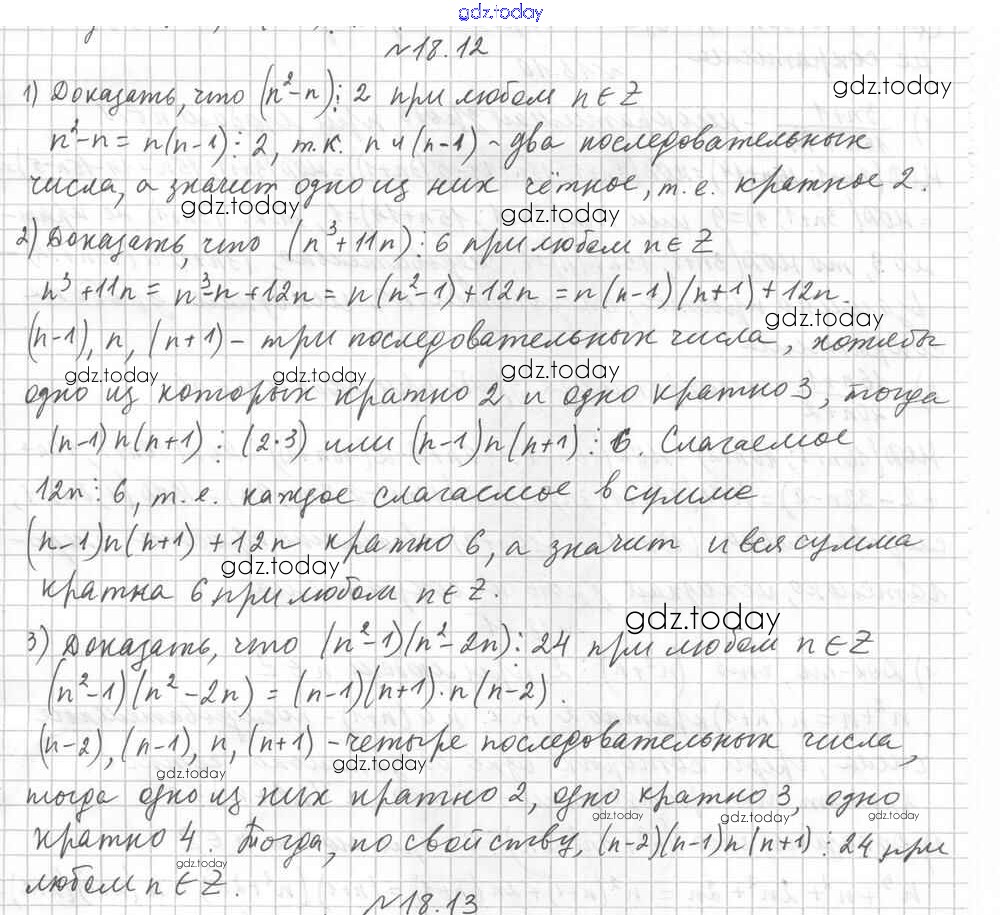 gdz.today
№18.12
1) Доказать, что (n²-n)⋮2 при любом n∈Z
gdz.today
n²-n = n(n-1)⋮2, т.к. n и (n-1) - два последовательных
числа, а значит одно из них чётное, т.е. кратное 2.
gdz.today
gdz.today
2) Доказать, что (n³+11n)⋮6 при любом n∈Z
n³+11n = n³-n+12n = n(n²-1)+12n = n(n-1)(n+1)+12n.
gdz.today
(n-1), n, (n+1) - три последовательных числа, хотябы
gdz.today
gdz.today
gdz.today
одно из которых кратно 2 и одно кратно 3, тогда
(n-1)n(n+1)⋮(2·3) или (n-1)n(n+1)⋮6. Слагаемое
12n⋮6, т.е. каждое слагаемое в сумме
(n-1)n(n+1)+12n кратно 6, а значит и вся сумма
gdz.today
кратна 6 при любом n∈Z.
gdz.today
3) Доказать, что (n²-1)(n²-2n)⋮24 при любом n∈Z
(n²-1)(n²-2n) = (n-1)(n+1)·n(n-2).
(n-2), (n-1), n, (n+1) - четыре последовательных числа,
gdz.today
gdz.today
тогда одно из них кратно 2, одно кратно 3, одно
gdz.today
gdz.today
gdz.today
кратно 4. Тогда, по свойству, (n-2)(n-1)n(n+1)⋮24 при
gdz.today
любом n∈Z.
№18.13